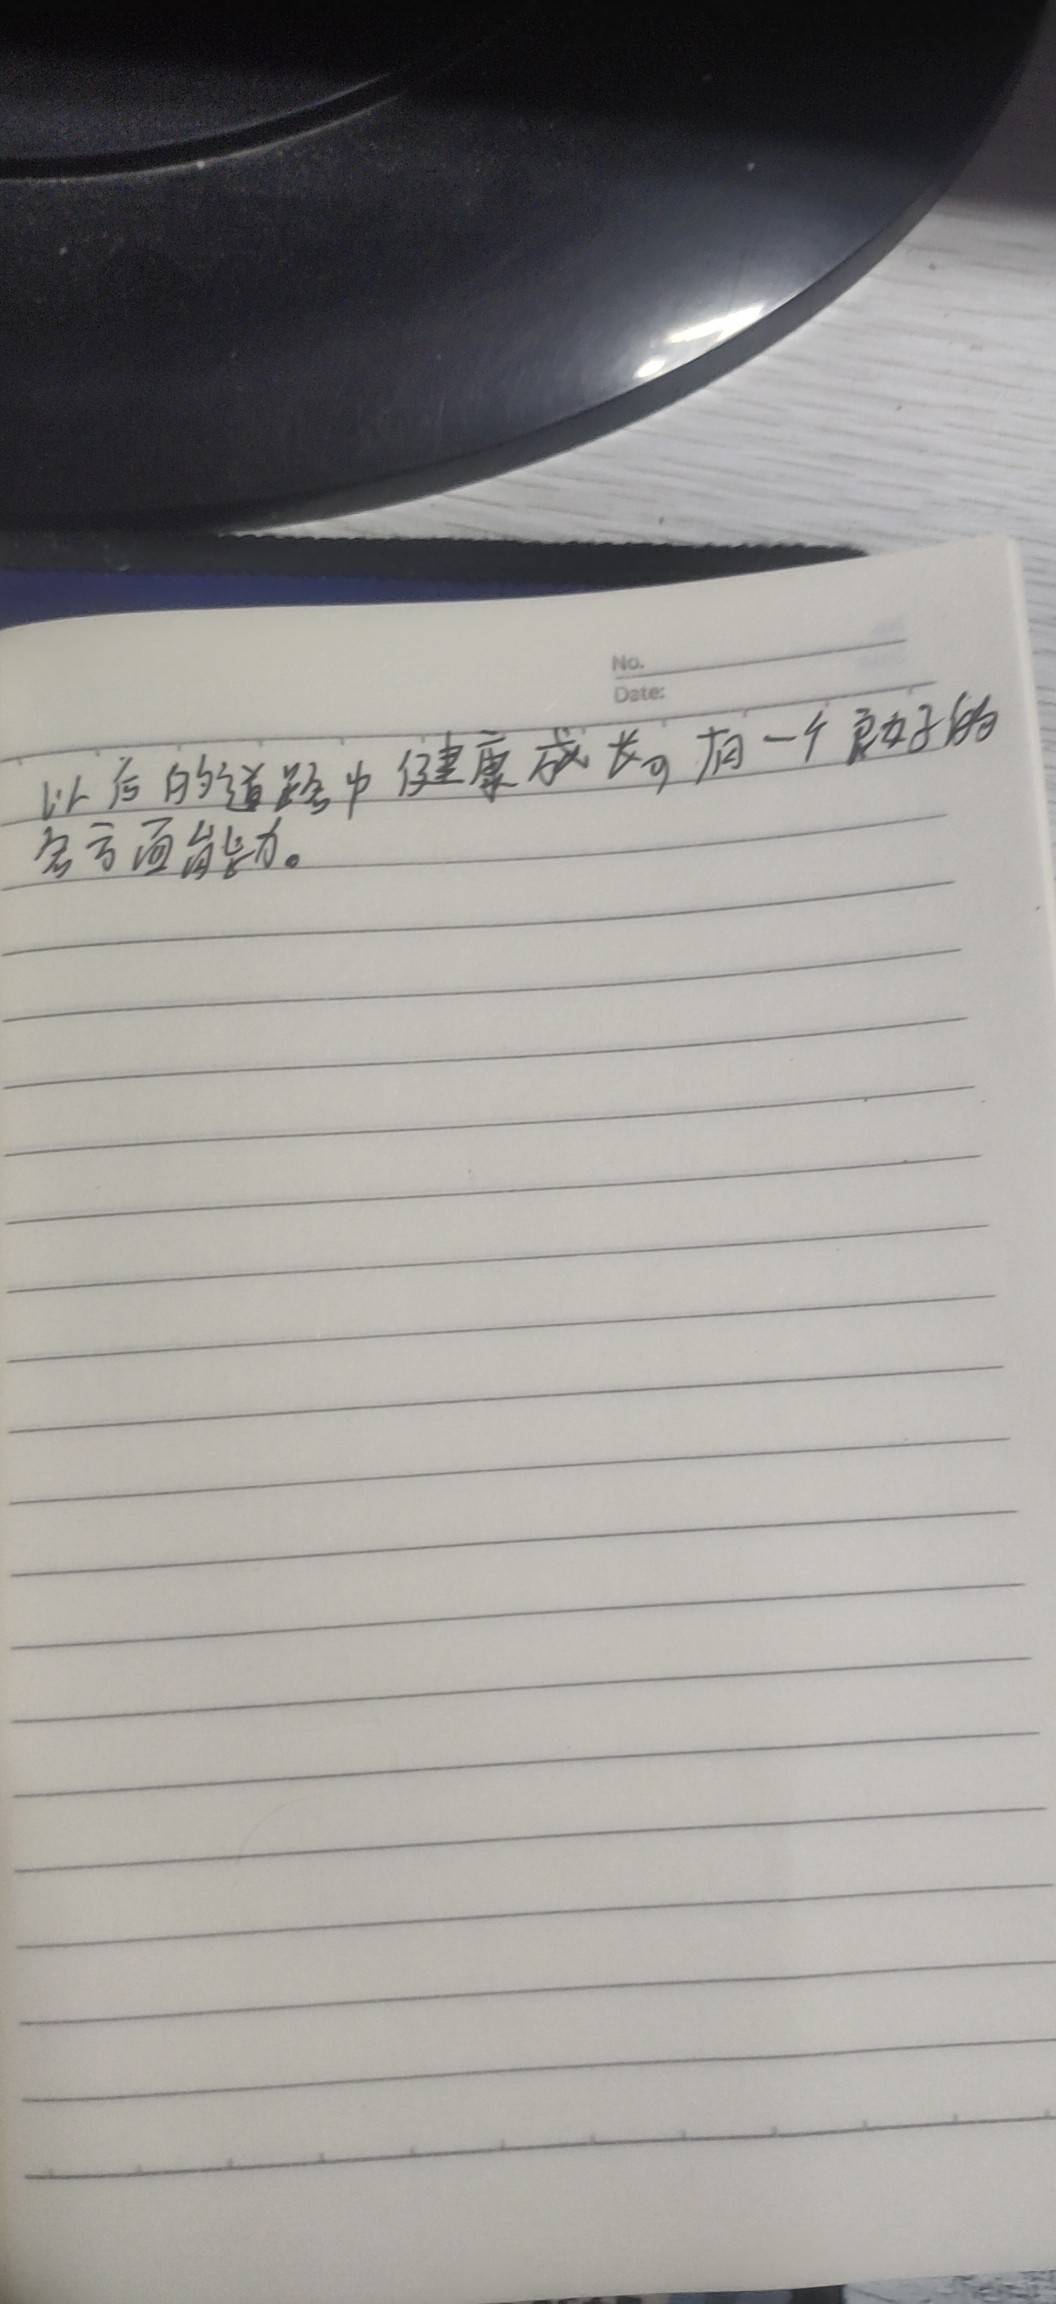 No.
Date:
以后的道路中健康成长，有一个良好的
各方面能力。